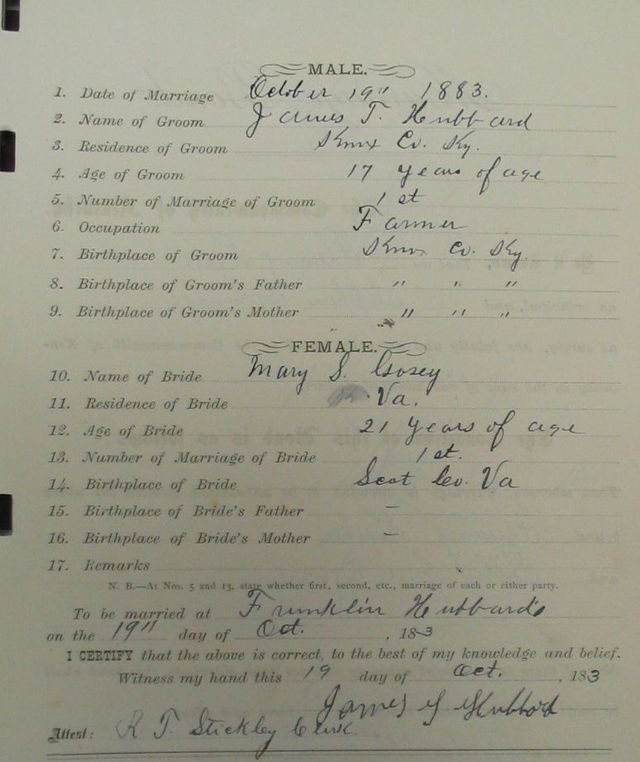 MALE.
1. Date of Marriage October 19" 1883.
2. Name of Groom James T. Hubbard
3. Residence of Groom Knox Co. Ky.
4. Age of Groom 17 years of age
5. Number of Marriage of Groom 1st
6. Occupation Farmer
7. Birthplace of Groom Knox Co. Ky
8. Birthplace of Groom's Father " " "
9. Birthplace of Groom's Mother " " "
FEMALE.
10. Name of Bride Mary S. Gosey
11. Residence of Bride Va.
12. Age of Bride 21 years of age
13. Number of Marriage of Bride 1st.
14. Birthplace of Bride Scot Co. Va
15. Birthplace of Bride's Father –
16. Birthplace of Bride's Mother –
17. Remarks
N. B.—At Nos. 5 and 13, state whether first, second, etc., marriage of each or either party.
To be married at Franklin Hubbard's
on the 19" day of Oct. , 1883
I CERTIFY that the above is correct, to the best of my knowledge and belief.
Witness my hand this 19 day of Oct. , 183
James T Hubbard
Attest: R. T. Stickley Clerk.